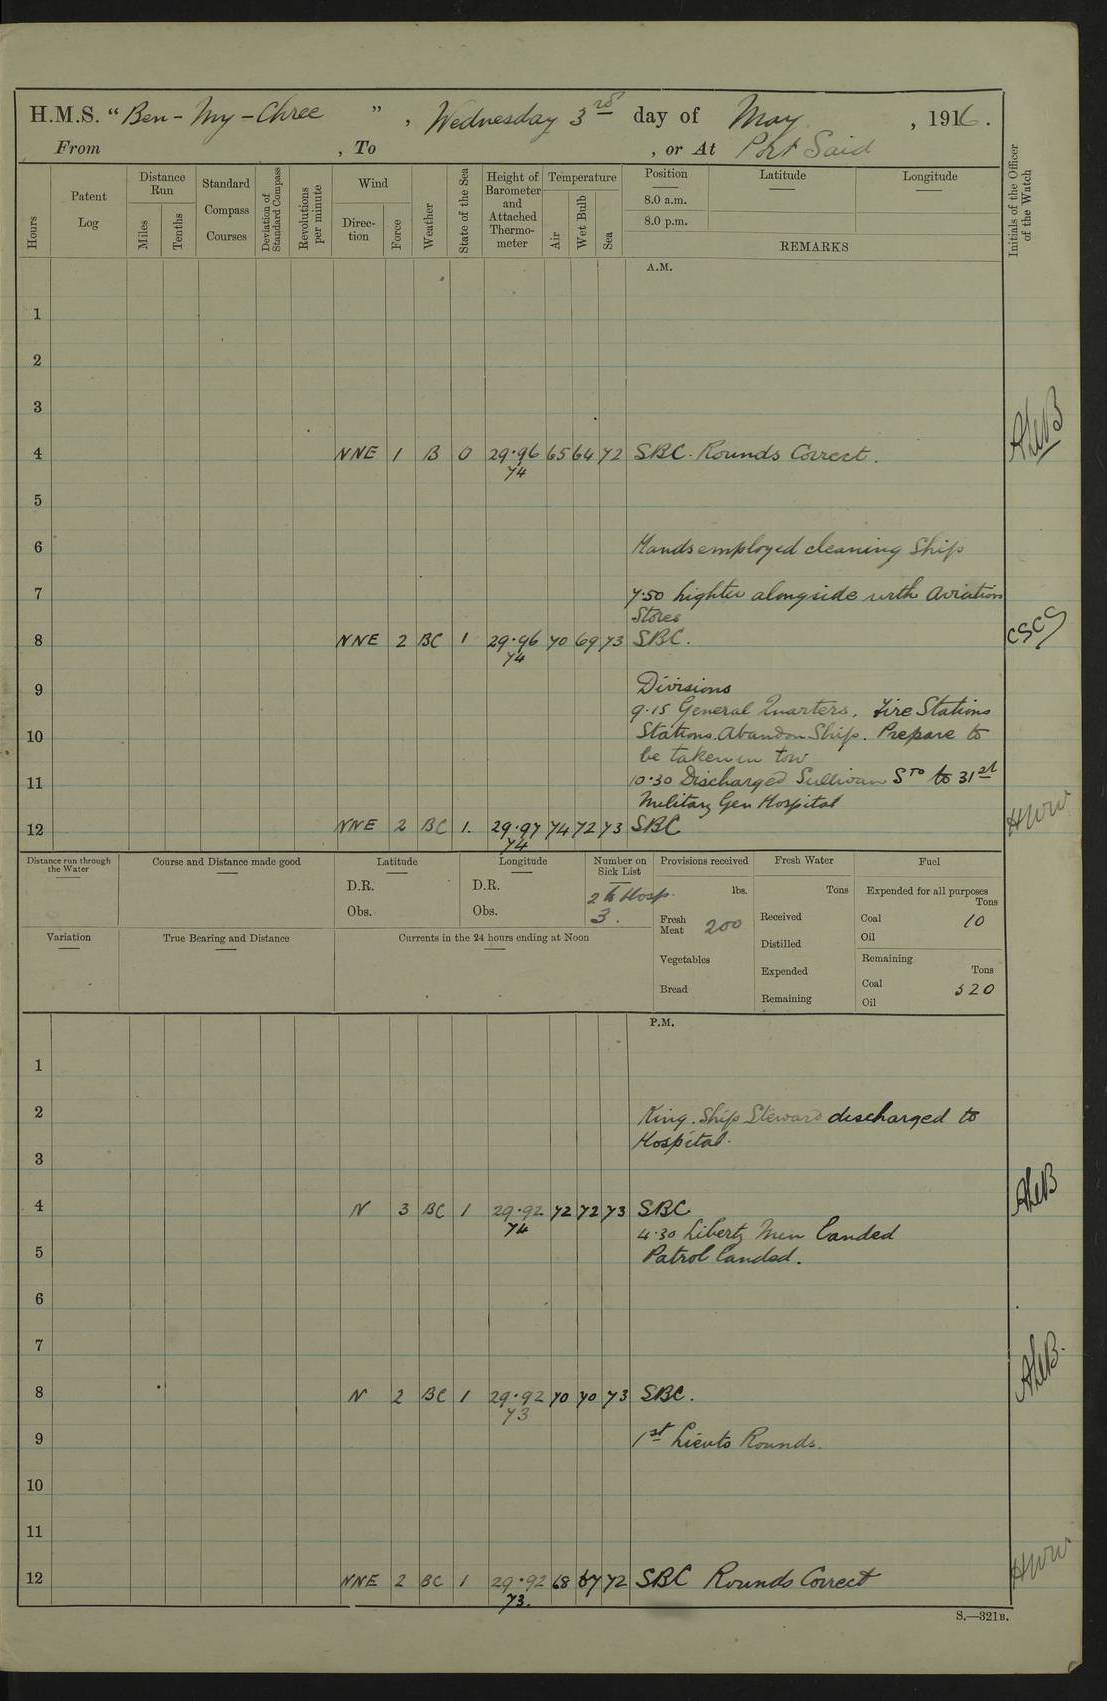 H.M.S. "Ben-My-Chree", Wednesday 3rd day of May, 1916.
From , To , or At Port Said
Hours
Patent Log
Distance Run
Miles
Tenths
Standard Compass Courses
Deviation of Standard Compass
Revolutions per minute
Wind
Direction
Force
Weather
State of the Sea
Height of Barometer and Attached Thermometer
Temperature
Air
Wet Bulb
Sea
Position
8.0 a.m.
8.0 p.m.
Latitude
Longitude
REMARKS
Initials of the Officer of the Watch
A.M.
1
2
3
4 NNE 1 B 0 29.96 65 64 72 SBC. Rounds Correct. AleB
74
5
6 Hands employed cleaning Ship
7 7.50 Lighter alongside with Aviation
Stores
8 NNE 2 BC 1 29.96 70 69 73 SBC. CSCS
74
9 Divisions
9.15 General Quarters, Fire Stations
10 Stations Abandon Ship. Prepare to
be taken in tow
11 10.30 Discharged Sullivan Sto to 31st
Military Gen Hospital
12 NNE 2 BC 1. 29.97 74 72 73 SBC HWW
74
Distance run through the Water
Course and Distance made good
Latitude
D.R.
Obs.
Longitude
D.R.
Obs.
Number on Sick List
2 to Hosp.
3.
Provisions received
lbs.
Fresh Meat 200
Vegetables
Bread
Fresh Water
Tons
Received
Distilled
Expended
Remaining
Fuel
Expended for all purposes
Tons
Coal 10
Oil
Remaining
Tons
Coal 520
Oil
Variation
True Bearing and Distance
Currents in the 24 hours ending at Noon
P.M.
1
2 King. Ship Steward discharged to
Hospital.
3
4 N 3 BC 1 29.92 72 72 73 SBC AleB
74
4.30 Liberty Men Landed
5 Patrol Landed.
6
7
8 N 2 BC 1 29.92 70 70 73 SBC. AleB.
73
9 1st Lieuts Rounds.
10
11
12 NNE 2 BC 1 29.92 68 67 72 SBC Rounds Correct HWW
73.
S.—321B.